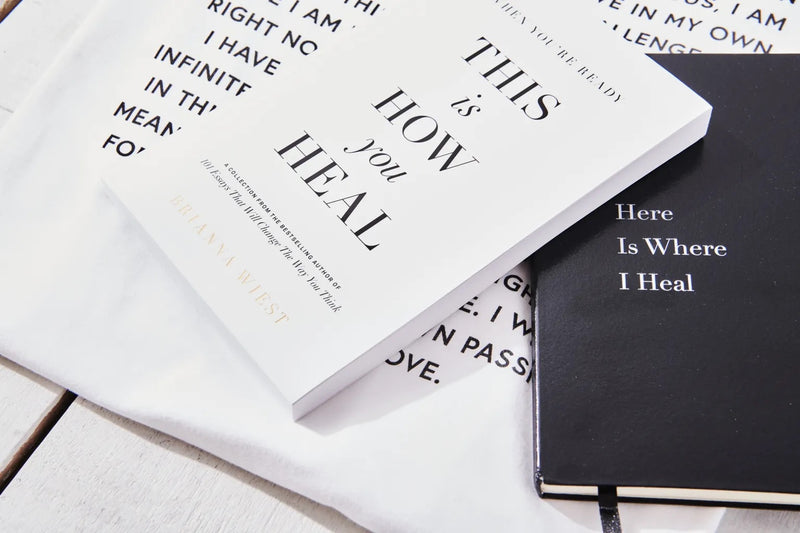 I AM
RIGHT
I HAVE
INFINITE
IN
I AM
IN MY OWN
WHEN YOU'RE READY
THIS
is
HOW
you
HEAL
A COLLECTION FROM THE BESTSELLING AUTHOR OF
101 Essays That Will Change The Way You Think
BRIANNA WIEST
Here
Is Where
I Heal